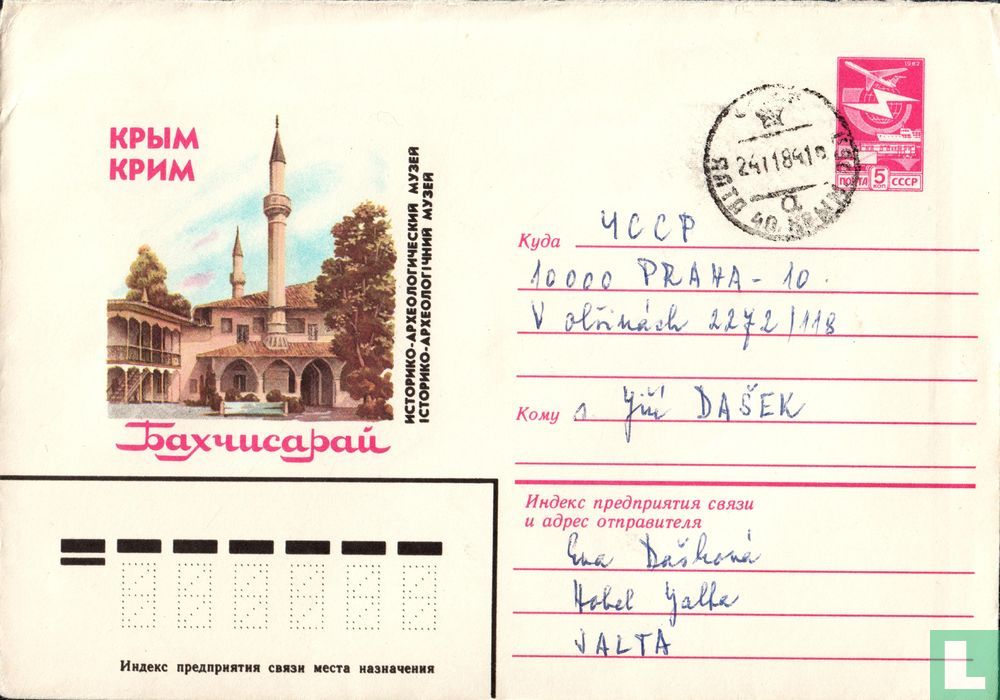 КРЫМ
КРИМ
ИСТОРИКО-АРХЕОЛОГИЧЕСКИЙ МУЗЕЙ
ІСТОРИКО-АРХЕОЛОГІЧНИЙ МУЗЕЙ
Бахчисарай
1982
ПОЧТА 5 КОП СССР
Куда ЧССР
10000 PRAHA - 10.
V olšinách 2272/118
Кому Jiří DAŠEK
Индекс предприятия связи
и адрес отправителя
Eva Dašková
Hotel Jalta
JALTA
Индекс предприятия связи места назначения
L